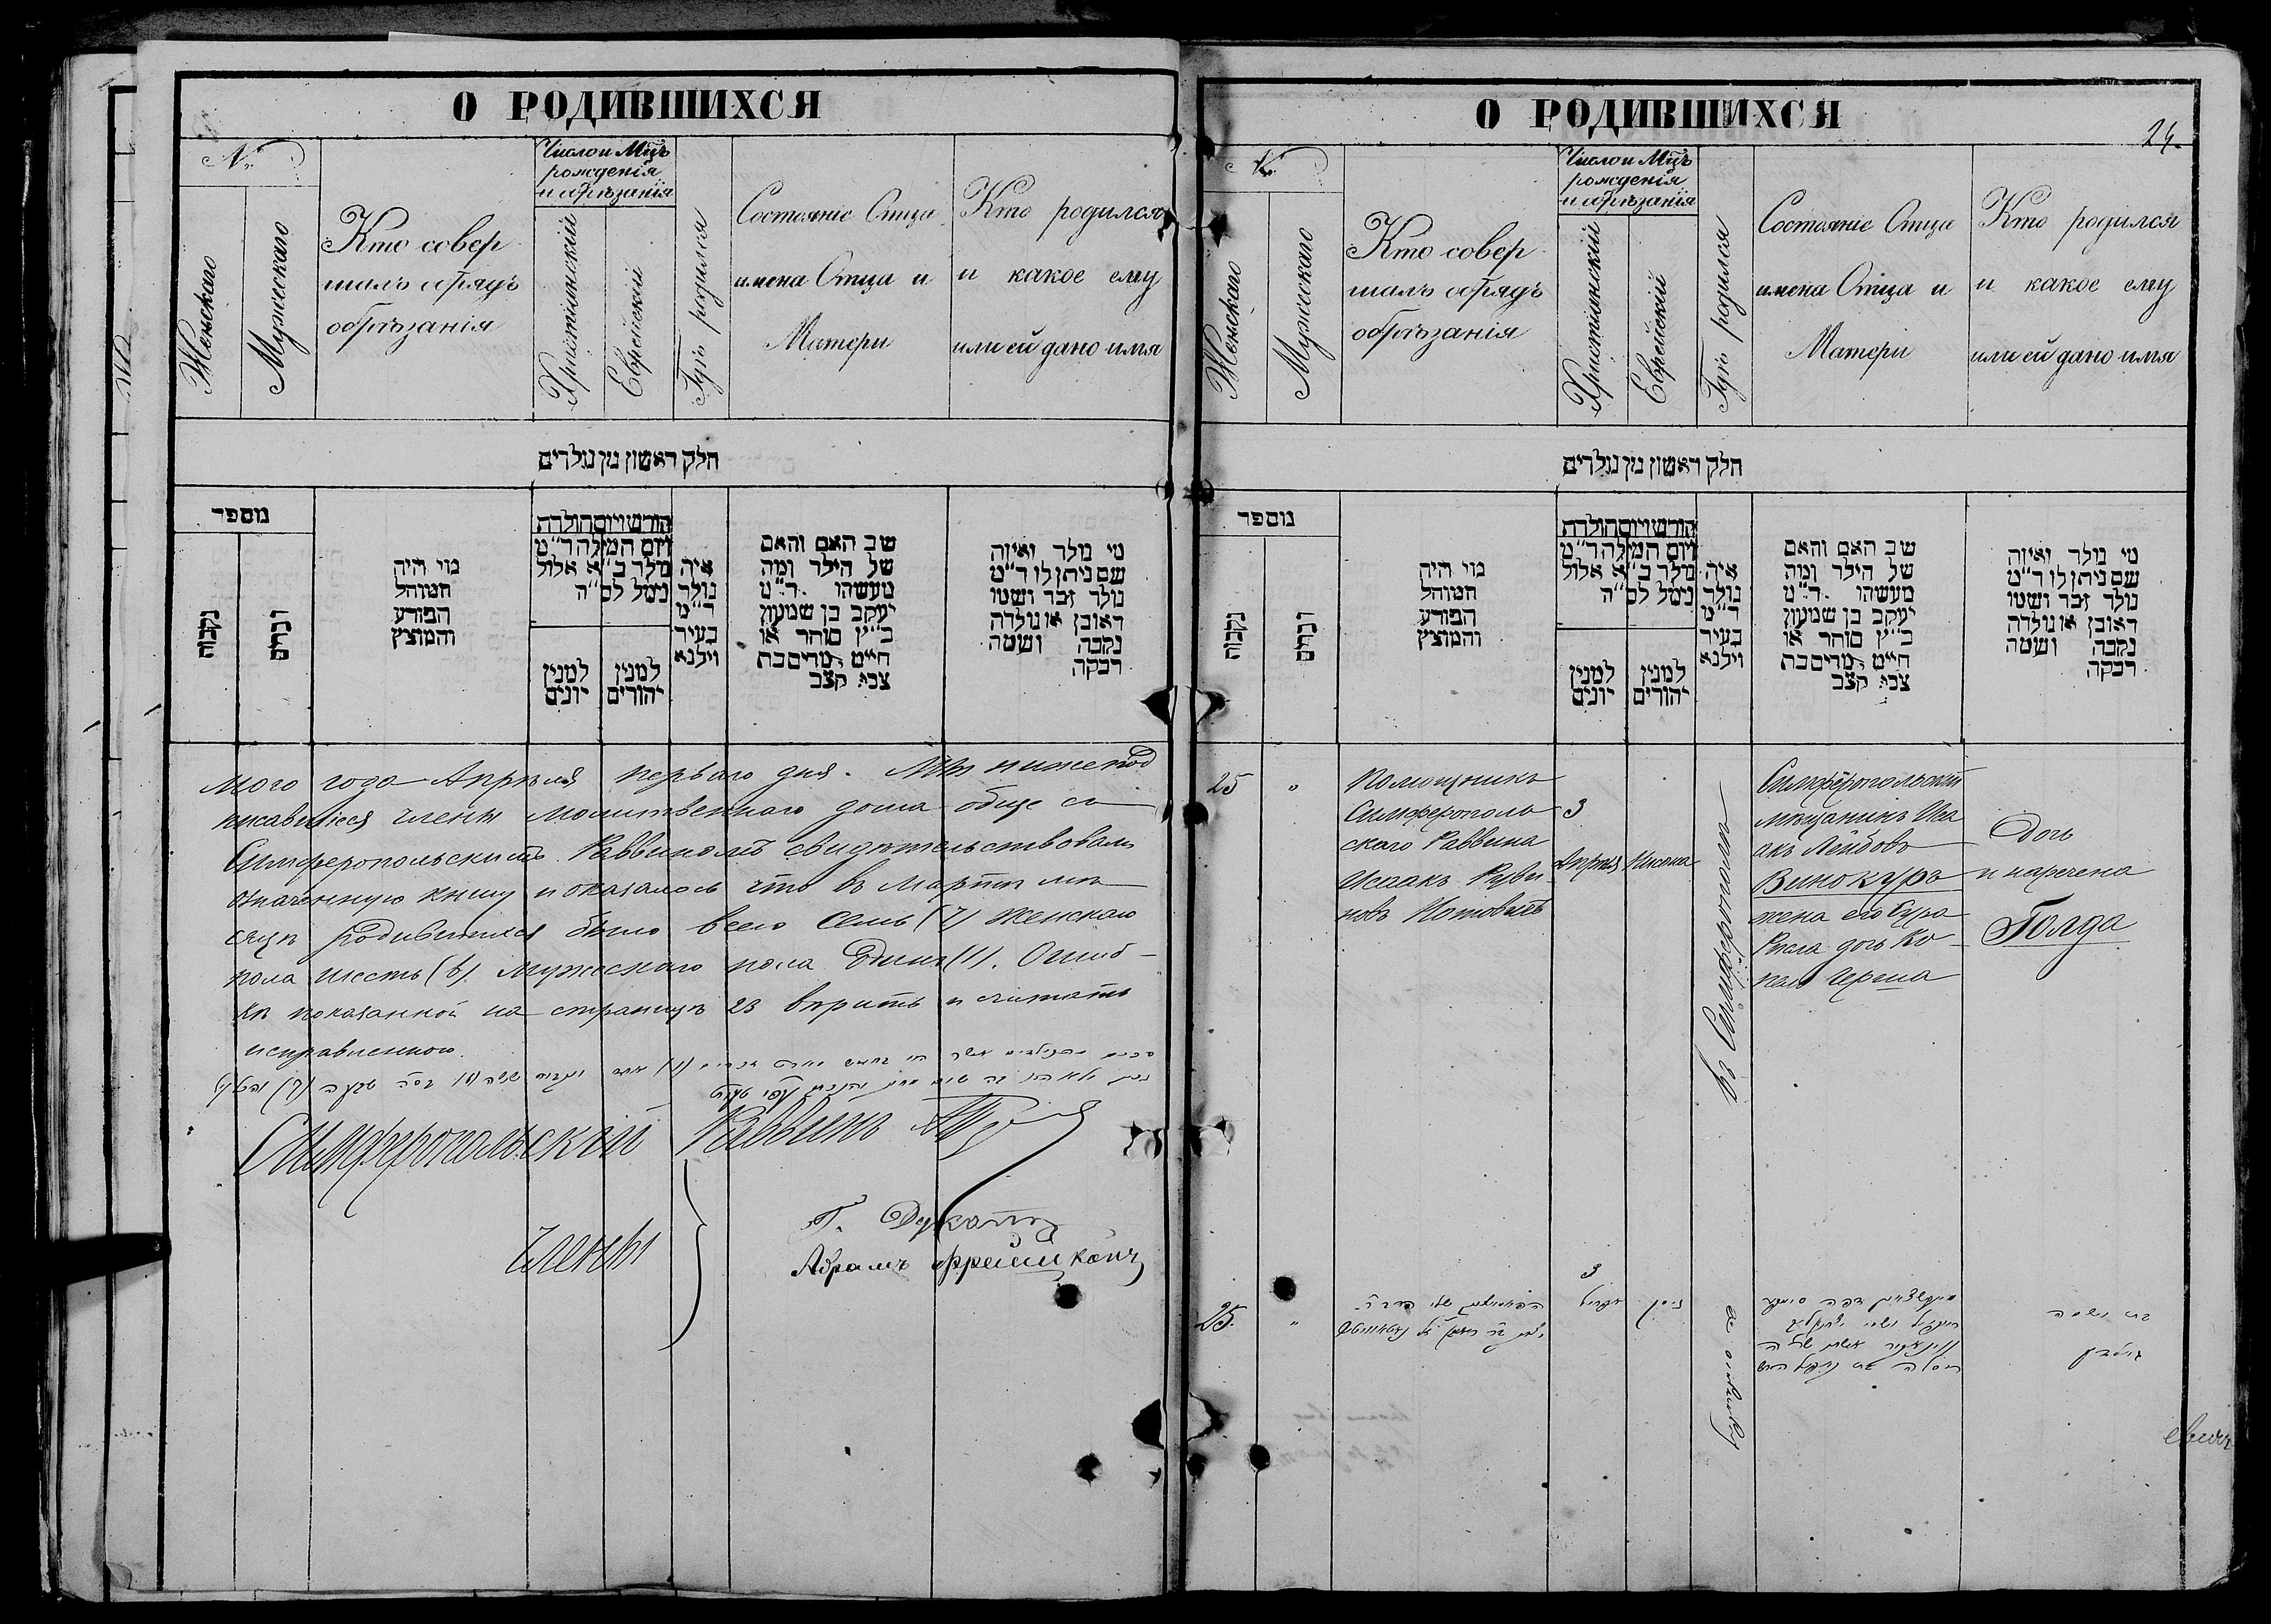 О РОДИВШИХСЯ
№
Женскаго
Мужескаго
Кто совер
шалъ обрядъ
обрѣзанія
Число и Мцъ
рожденія
и обрѣзанія
Христіянскій
Еврейскій
Гдѣ родился
Состояніе Отца
имена Отца и
Матери
Кто родился
и какое ему
или ей дано имя
חלק ראשון מן נולדים
מספר
נקבות
זכרים
מי היה
המוהל
הפורע
והמוצץ
חודש ויום הולדת
ויום המילה ד"מ
נולד ב"א אלול
נימל לס"ה
למנין
יונים
למנין
יהודים
איה
נולד
ד"מ
בעיר
וילנא
שב האם והאם
של הילד ומה
מעשהו ד"מ
יעקב בן שמעון
ב"ץ סוחר או
חייט מרים בת
צבי קצב
מי נולד ואיזה
שם ניתן לו ד"מ
נולד זכר ושמו
ראובן או נולדה
נקבה ושמה
רבקה
мого года Апрѣля перваго дня. Мы нижепод
писавшіеся члены молитвеннаго дома обще съ
Симферопольскимъ Раввиномъ свидѣтельствовали
означенную книгу и оказалось что въ Мартѣ мѣ
сяцѣ родившихся было всего семь (7) женскаго
пола шесть (6) мужескаго пола одинъ (1). Ошиб-
ка показанной на страницѣ 23 вѣрить и считать
исправленною.
Симферопольскій Раввинъ
Члены
Г.
Абрамъ
О РОДИВШИХСЯ
24.
№
Женскаго
Мужескаго
Кто совер
шалъ обрядъ
обрѣзанія
Число и Мцъ
рожденія
и обрѣзанія
Христіянскій
Еврейскій
Гдѣ родился
Состояніе Отца
имена Отца и
Матери
Кто родился
и какое ему
или ей дано имя
חלק ראשון מן נולדים
מספר
נקבות
זכרים
מי היה
המוהל
הפורע
והמוצץ
חודש ויום הולדת
ויום המילה ד"מ
נולד ב"א אלול
נימל לס"ה
למנין
יונים
למנין
יהודים
איה
נולד
ד"מ
בעיר
וילנא
שב האם והאם
של הילד ומה
מעשהו ד"מ
יעקב בן שמעון
ב"ץ סוחר או
חייט מרים בת
צבי קצב
מי נולד ואיזה
שם ניתן לו ד"מ
נולד זכר ושמו
ראובן או נולדה
נקבה ושמה
רבקה
25 "
Помощникъ
Симферополь
скаго Раввина
Исаакъ Руви
новъ
3
Апрѣля
Нисона
въ Симферополѣ
Симферопольскій
мѣщанинъ Иса
акъ Лейбовъ
Винокуръ
жена его Сура
Рисла дочь Ко
пель Герша
Дочь
и наречена
Голда
25. "
3
אפריל
ניסן
בת ושמה